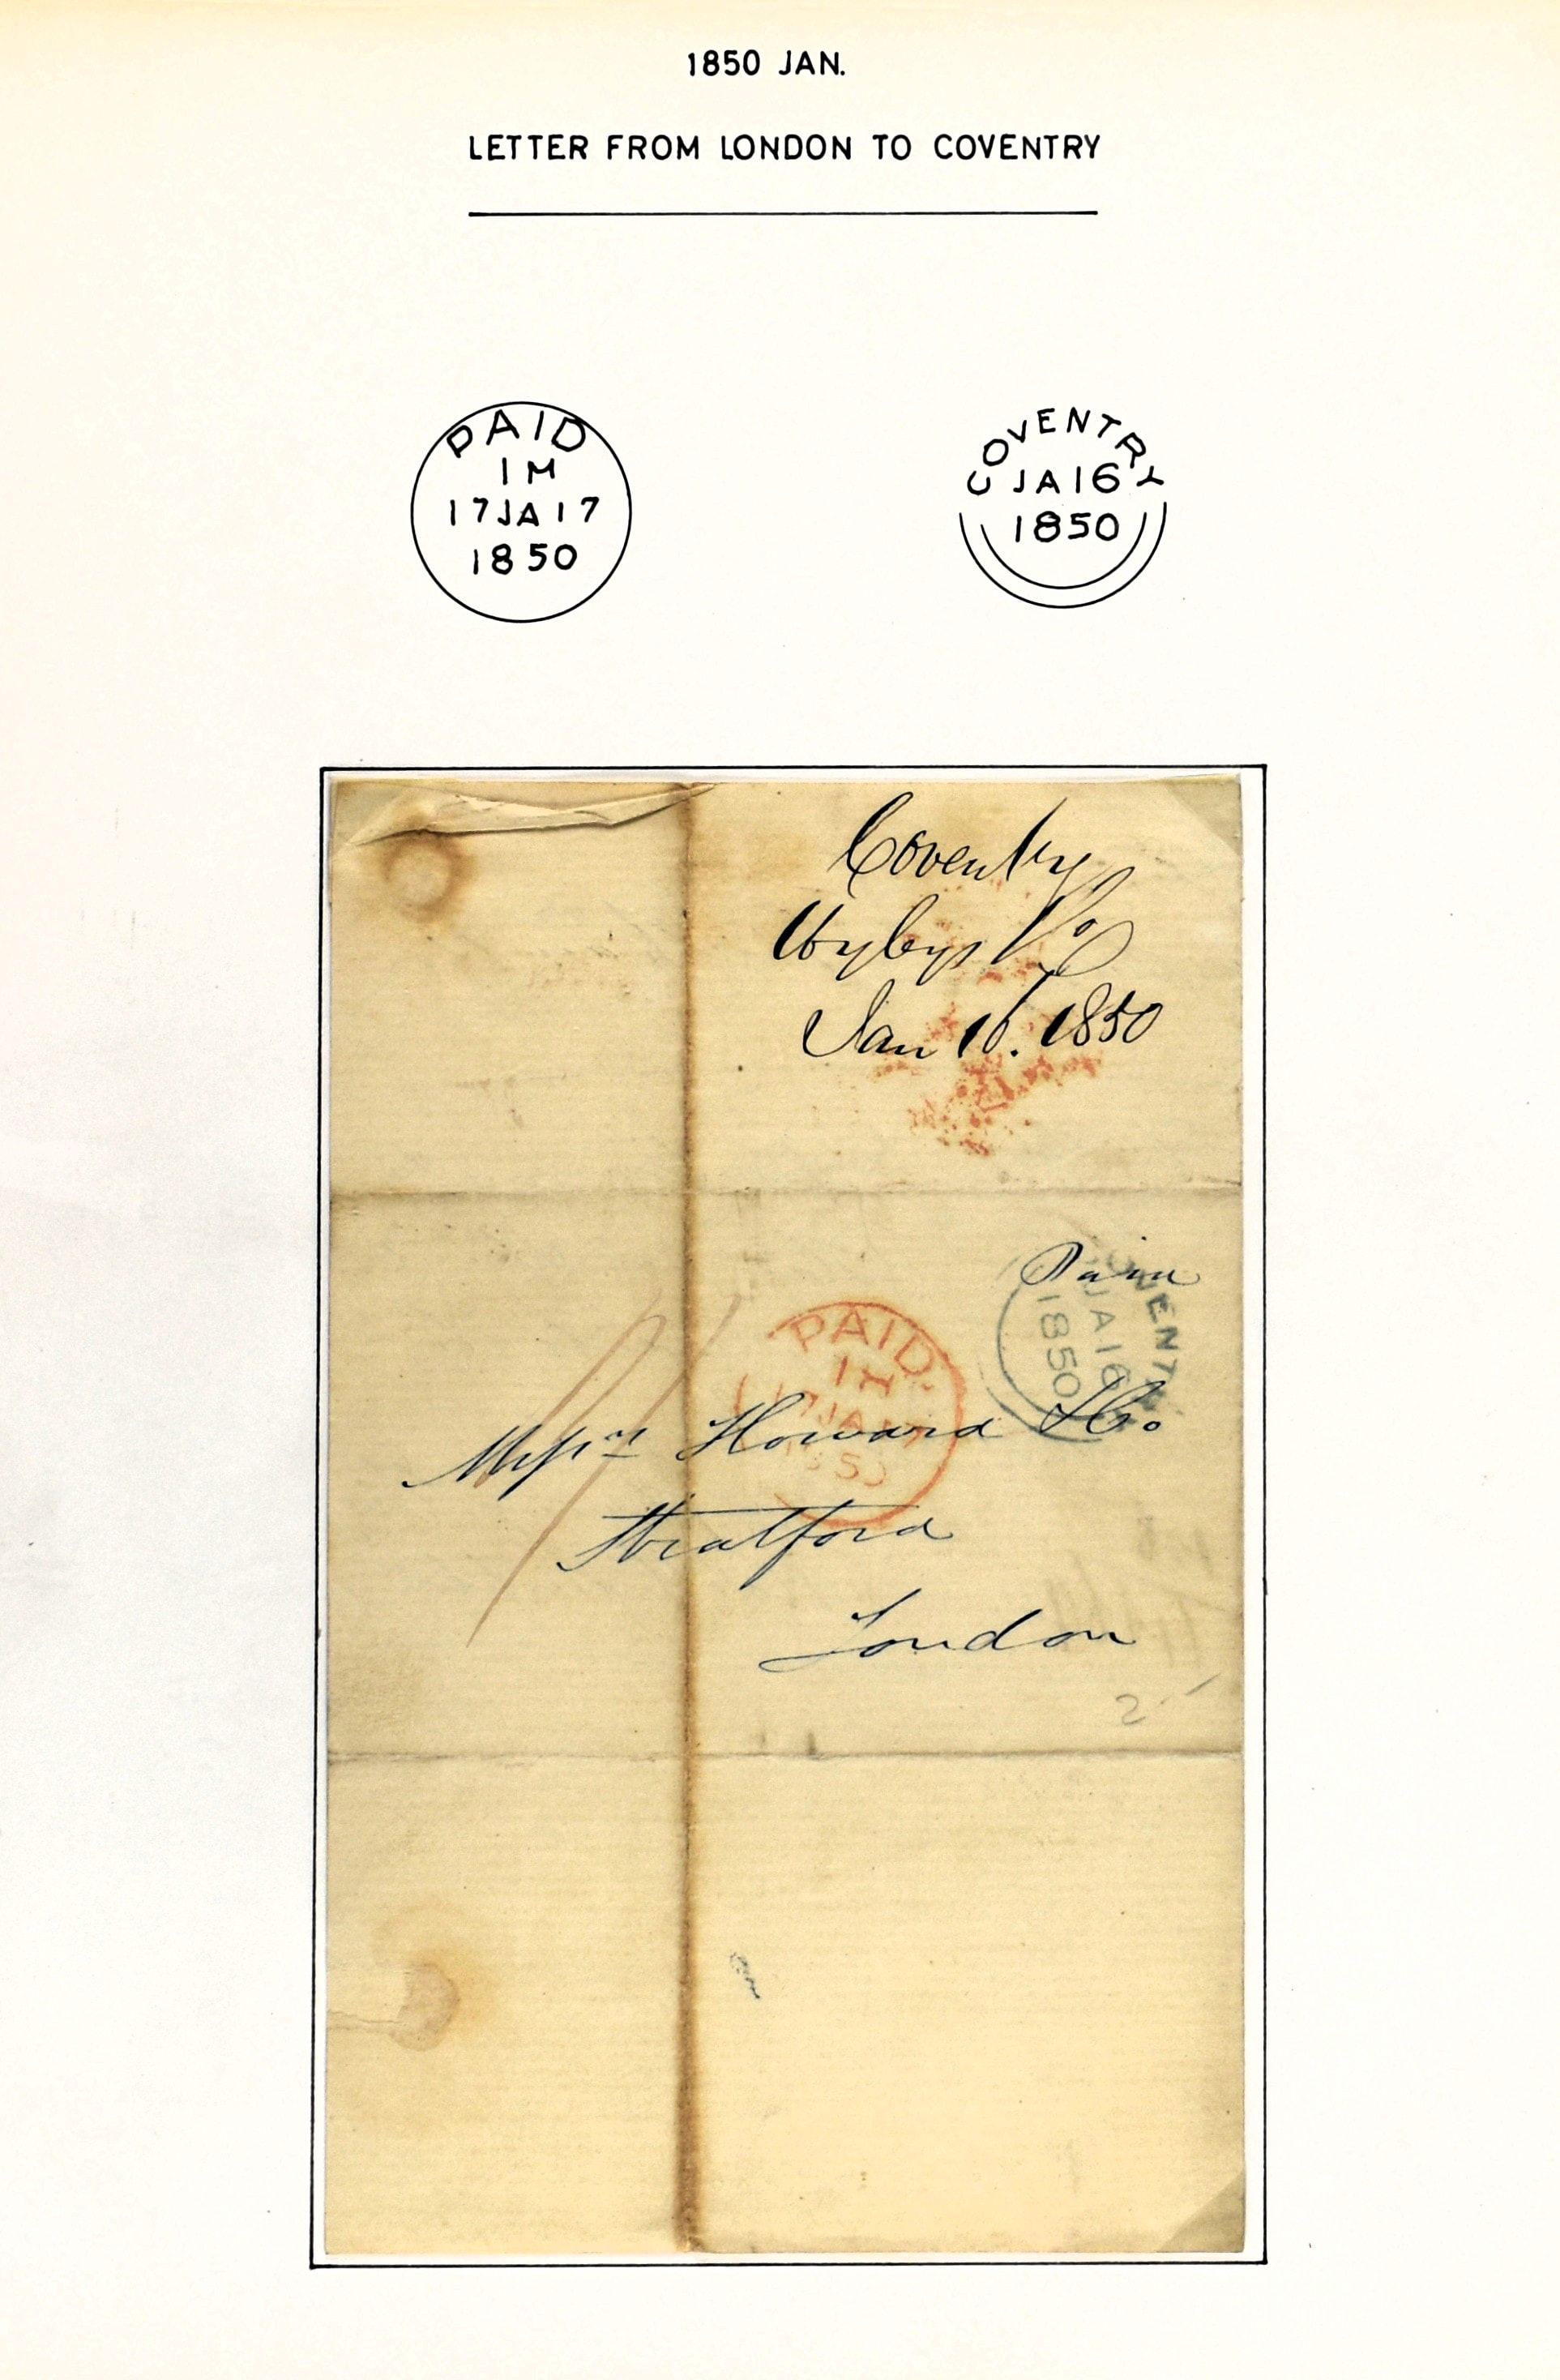 1850 JAN.
LETTER FROM LONDON TO COVENTRY
PAID
1M
17JA17
1850
COVENTRY
JA16
1850
Coventry
Jan 16. 1850
Paid
COVENT
JA16
1850
PAID
1M
17JA17
1850
Messrs Howard & Co
Stratford
London
2